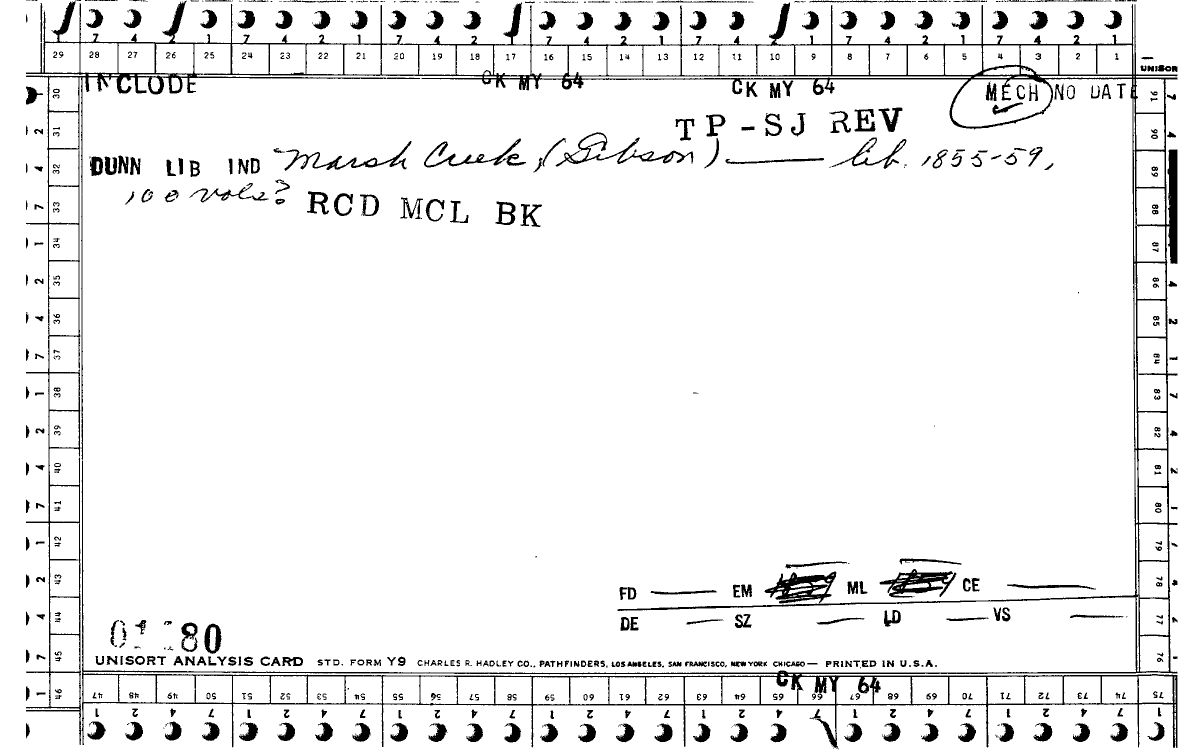 7 4 2 1 7 4 2 1 7 4 2 1 7 4 2 1 7 4 2 1 7 4 2 1 7 4 2 1
29 28 27 26 25 24 23 22 21 20 19 18 17 16 15 14 13 12 11 10 9 8 7 6 5 4 3 2 1
UNISOR
INCLODE CK MY 64 CK MY 64 MECH NO DATE
TP-SJ REV
DUNN LIB IND Marsh Creek, (Gibson) —— lib. 1855-59,
100 vols? RCD MCL BK
30 31 32 33 34 35 36 37 38 39 40 41 42 43 44 45 46
91 90 89 88 87 86 85 84 83 82 81 80 79 78 77 76 75
FD —— EM ML CE ——
DE — SZ — LD — VS —
80
UNISORT ANALYSIS CARD STD. FORM Y9 CHARLES R. HADLEY CO., PATHFINDERS, LOS ANGELES, SAN FRANCISCO, NEW YORK CHICAGO — PRINTED IN U.S.A.
CK MY 64
47 48 49 50 51 52 53 54 55 56 57 58 59 60 61 62 63 64 65 66 67 68 69 70 71 72 73 74
1 2 4 7 1 2 4 7 1 2 4 7 1 2 4 7 1 2 4 7 1 2 4 7 1 2 4 7 1